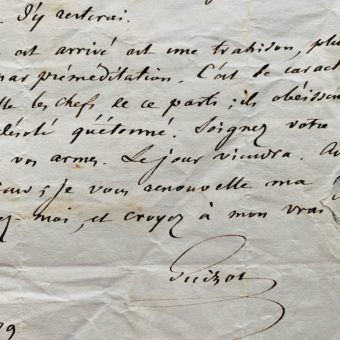 J'y resterai.
est arrivé est une trahison, plu
par préméditation. C'est le caract
les chefs de ce parti; ils obéissen
qu'étonné. Soignez votre
vos armes. Le jour viendra. A
je vous renouvelle ma
moi, et croyez à mon vrai
Guizot
9